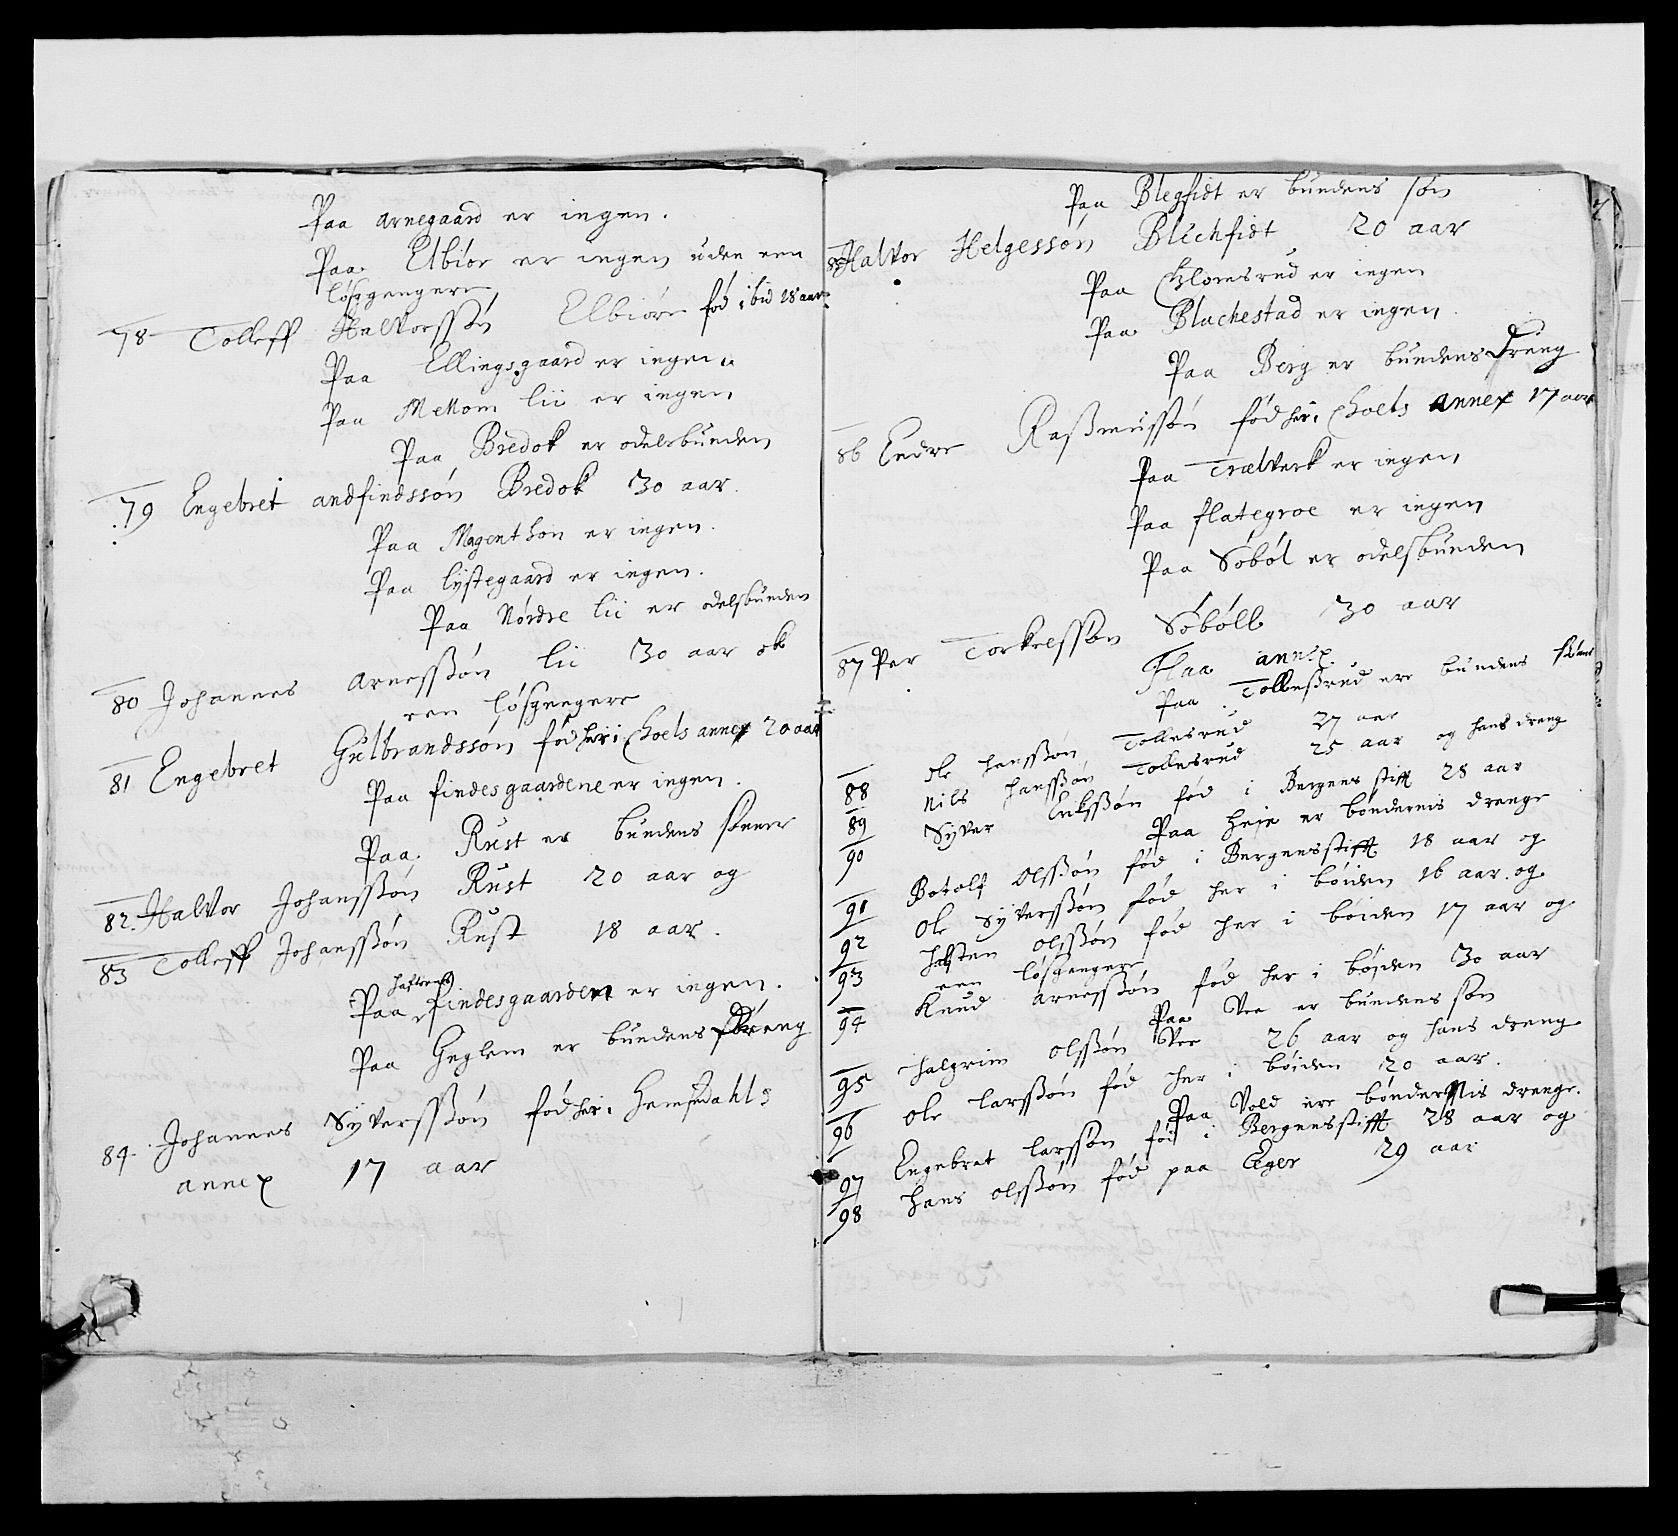 Paa Arnegaard er ingen.
Paa Elbiør er ingen uden een
løsgengere
78 Tolleff Halvorssøn Elbiørn fød ibid 18 aar
Paa Ellingsgaard er ingen.
Paa Mellom lii er ingen
Paa Bredok er odelsbunden
79 Engebret andfindssøn Bredok 30 aar.
Paa Magenthon er ingen.
Paa lystegaard er ingen.
Paa Nørdre lii er odelsbunden
80 Johannes Arnessøn lii 30 aar ok
een løsgengere
81 Engebret Gulbrandssøn fød her i Choels annex 20 aar
Paa findesgaardene er ingen.
Paa Rust er bundens sønner
82. Halvor Johanssøn Rust 20 aar og
83 Tolleff Johanssøn Rust 18 aar.
Paa findesgaarden er ingen.
Paa Geglem er bundens dreng
84. Johannes Syverssøn fød her i Hemsedahls
annex 17 aar
Paa Blegfidt er bundens søn
85 Halvor Helgessøn Blichfidt 20 aar
Paa Glomsrud er ingen
Paa Blachestad er ingen.
Paa Berg er bundens Dreng
86 Endre Rasmussøn fød her i Choels annex 17 aar
Paa Trælverk er ingen
Paa flategroe er ingen
Paa Søbøl er odelsbunden
87 Per Torkelssøn Søbøll 30 aar
Flaa annex
Paa Tollessrud ere bundens sønner
88 Ole hanssøn Tollesrud 27 aar
89 Nils hanssøn Tollesrud 25 aar og hans dreng
90 Syver Erikssøn fød i Bergens stifft 28 aar
Paa Heje er bøndernis drenge
91 Botolf Olssøn fød i Bergensstifft 18 aar og
92 Ole Syverssøn fød her i bøiden 16 aar. og
93 halsten olssøn fød her i bøiden 17 aar og
een løsgengere
94 Knud Arnessøn fød her i bøjden 30 aar
Paa Vee er bundens søn
95 halgrim olssøn Vee 26 aar og hans dreng
96 Ole larssøn fød her i bøiden 20 aar.
Paa Vold ere bøndernis drenge.
97 Engebret larssøn fød i Bergensstifft 28 aar og
98 hans olssøn fød paa Eger 29 aar